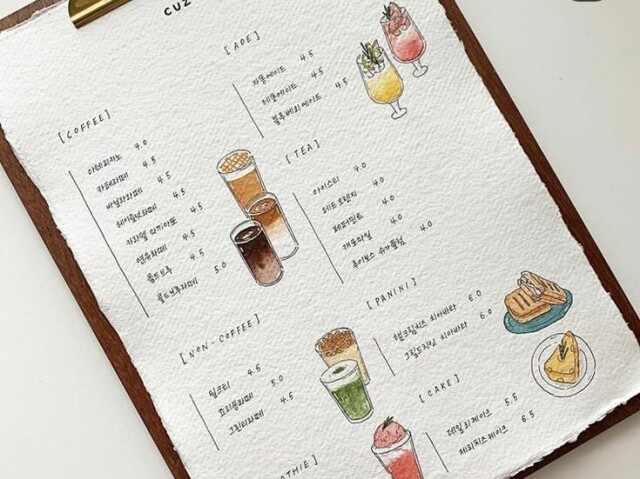 CUZ
[COFFEE]
아메리카노 4.0
카페라떼 4.5
바닐라라떼 4.5
헤이즐넛라떼 4.5
카라멜 마끼아또 4.5
연유라떼 4.5
콜드브루 4.5
콜드브루라떼 5.0
[NON-COFFEE]
밀크티 4.5
오리콩라떼 5.0
그린티라떼 4.5
[ADE]
자몽에이드 4.5
레몬에이드 4.5
블루베리에이드 4.5
[TEA]
아이스티 4.0
레드오렌지 4.0
페퍼민트 4.0
캐모마일 4.0
루이보스 4.0
[PANINI]
햄크림치즈 치아바타 6.0
그릴드치킨 치아바타 6.0
[CAKE]
데일리케이크 5.5
체리치즈케이크 6.5
THIE]